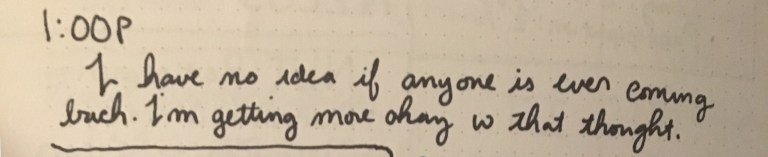 1:00P
I have no idea if anyone is ever coming
back. I'm getting more okay w that thought.